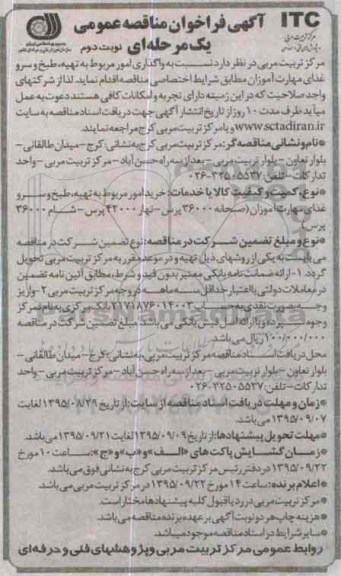 ITC
آگهی فراخوان مناقصه عمومی
یک مرحله‌ای نوبت دوم
مرکز تربیت مربی در نظر دارد نسبت به واگذاری امور مربوط به تهیه، طبخ و سرو
غذای مهارت آموزان مطابق شرایط اختصاصی مناقصه اقدام نماید. لذا از شرکتهای
واجد صلاحیت که در این زمینه دارای تجربه و امکانات کافی هستند دعوت به عمل
می‌آید ظرف مدت ۱۰ روز از تاریخ انتشار آگهی جهت دریافت اسناد مناقصه به سایت
www.sctadiran.ir و یا مرکز تربیت مربی کرج مراجعه نمایند.
*نام و نشانی مناقصه‌گزار: مرکز تربیت مربی کرج به نشانی: کرج - میدان طالقانی -
بلوار تعاون - بلوار تربیت مربی - بعد از سه راه حسن آباد - مرکز تربیت مربی - واحد
تدارکات - تلفن: ۳۲۵۰۵۵۳۷-۰۲۶
*نوع، کمیت و کیفیت کالا یا خدمات: خرید امور مربوط به تهیه، طبخ و سرو
غذای مهارت آموزان (صبحانه ۳۶۰۰۰ پرس - نهار ۴۲۰۰۰ پرس - شام ۳۶۰۰۰
پرس
*نوع و مبلغ تضمین شرکت در مناقصه: نوع تضمین شرکت در مناقصه
می‌بایست به یکی از روشهای ذیل تهیه و در موعد مقرر به مرکز تربیت مربی تحویل
گردد. ۱- ارائه ضمانت نامه بانکی معتبر بدون قید و شرط، مطابق آئین نامه تضمین
در معاملات دولتی با اعتبار حداقل سه ماهه در وجه مرکز تربیت مربی ۲- واریز
وجه بصورت نقدی به بانک مرکزی به نام تمرکز
وجوه سپرده و یا ارائه اصل فیش بانکی می باشد. مبلغ تضمین شرکت در مناقصه
۱۰۰/۰۰۰/۰۰۰ ریال می باشد.
محل دریافت اسناد مناقصه مرکز تربیت مربی، به نشانی: کرج - میدان طالقانی -
بلوار تعاون - بلوار تربیت مربی - بعد از سه راه حسن آباد - مرکز تربیت مربی - واحد
تدارکات - تلفن: ۳۲۵۰۵۵۳۷-۰۲۶
*زمان و مهلت دریافت اسناد مناقصه از سایت: از تاریخ ۱۳۹۵/۰۸/۲۹ لغایت
۱۳۹۵/۰۹/۰۷ می باشد.
*مهلت تحویل پیشنهادها: از تاریخ ۱۳۹۵/۰۹/۰۹ لغایت ۱۳۹۵/۰۹/۲۱ می باشد.
*زمان گشایش پاکت های «الف» و «ب» و «ج»: ساعت ۱۰ مورخ
۱۳۹۵/۰۹/۲۲ در دفتر رئیس مرکز تربیت مربی کرج به نشانی فوق می باشد.
*اعلام برنده: ساعت ۱۴ مورخ ۱۳۹۵/۰۹/۲۲ در مرکز تربیت مربی می باشد.
*مرکز تربیت مربی در رد یا قبول کلیه پیشنهادها مختار است.
*هزینه چاپ هر دو نوبت آگهی بر عهده برنده مناقصه می باشد.
*سایر شرایط در اسناد مناقصه موجود میباشد.
روابط عمومی مرکز تربیت مربی و پژوهشهای فنی و حرفه ای